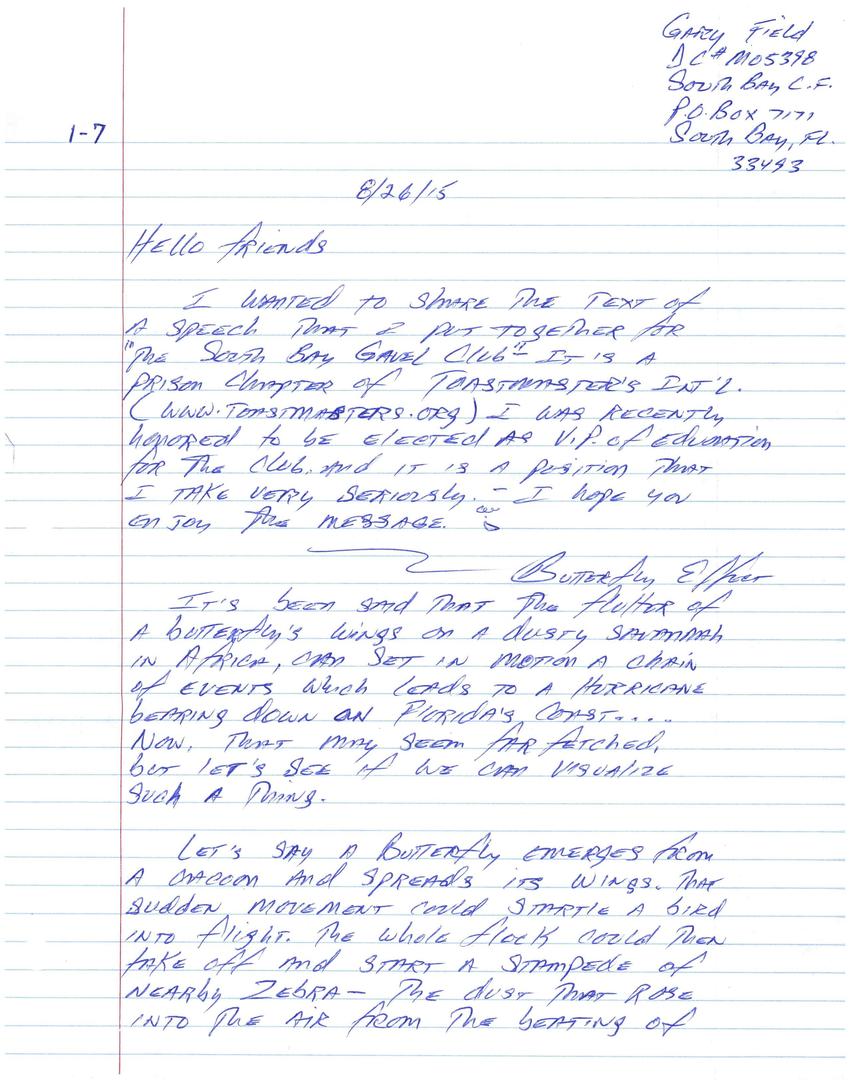 Gary Field
DC# M05398
South Bay C.F.
P.O. Box 7171
South Bay, FL.
33493
1-7
8/26/15
Hello friends
I wanted to share the text of
a speech that I put together for
"The South Bay Gavel Club" It is a
prison chapter of Toastmaster's Int'l.
(www.toastmasters.org) I was recently
honored to be elected as V.P. of Education
for the club. And it is a position that
I take very seriously. – I hope you
enjoy the message.
Butterfly Effect
It's been said that the flutter of
a butterfly's wings on a dusty savannah
in Africa, can set in motion a chain
of events which leads to a hurricane
bearing down on Florida's coast.....
Now, that may seem far fetched,
but let's see if we can visualize
such a thing.
Let's say a butterfly emerges from
a cacoon and spreads its wings. That
sudden movement could startle a bird
into flight. The whole flock could then
take off and start a stampede of
nearby zebra – the dust that rose
into the air from the beating of